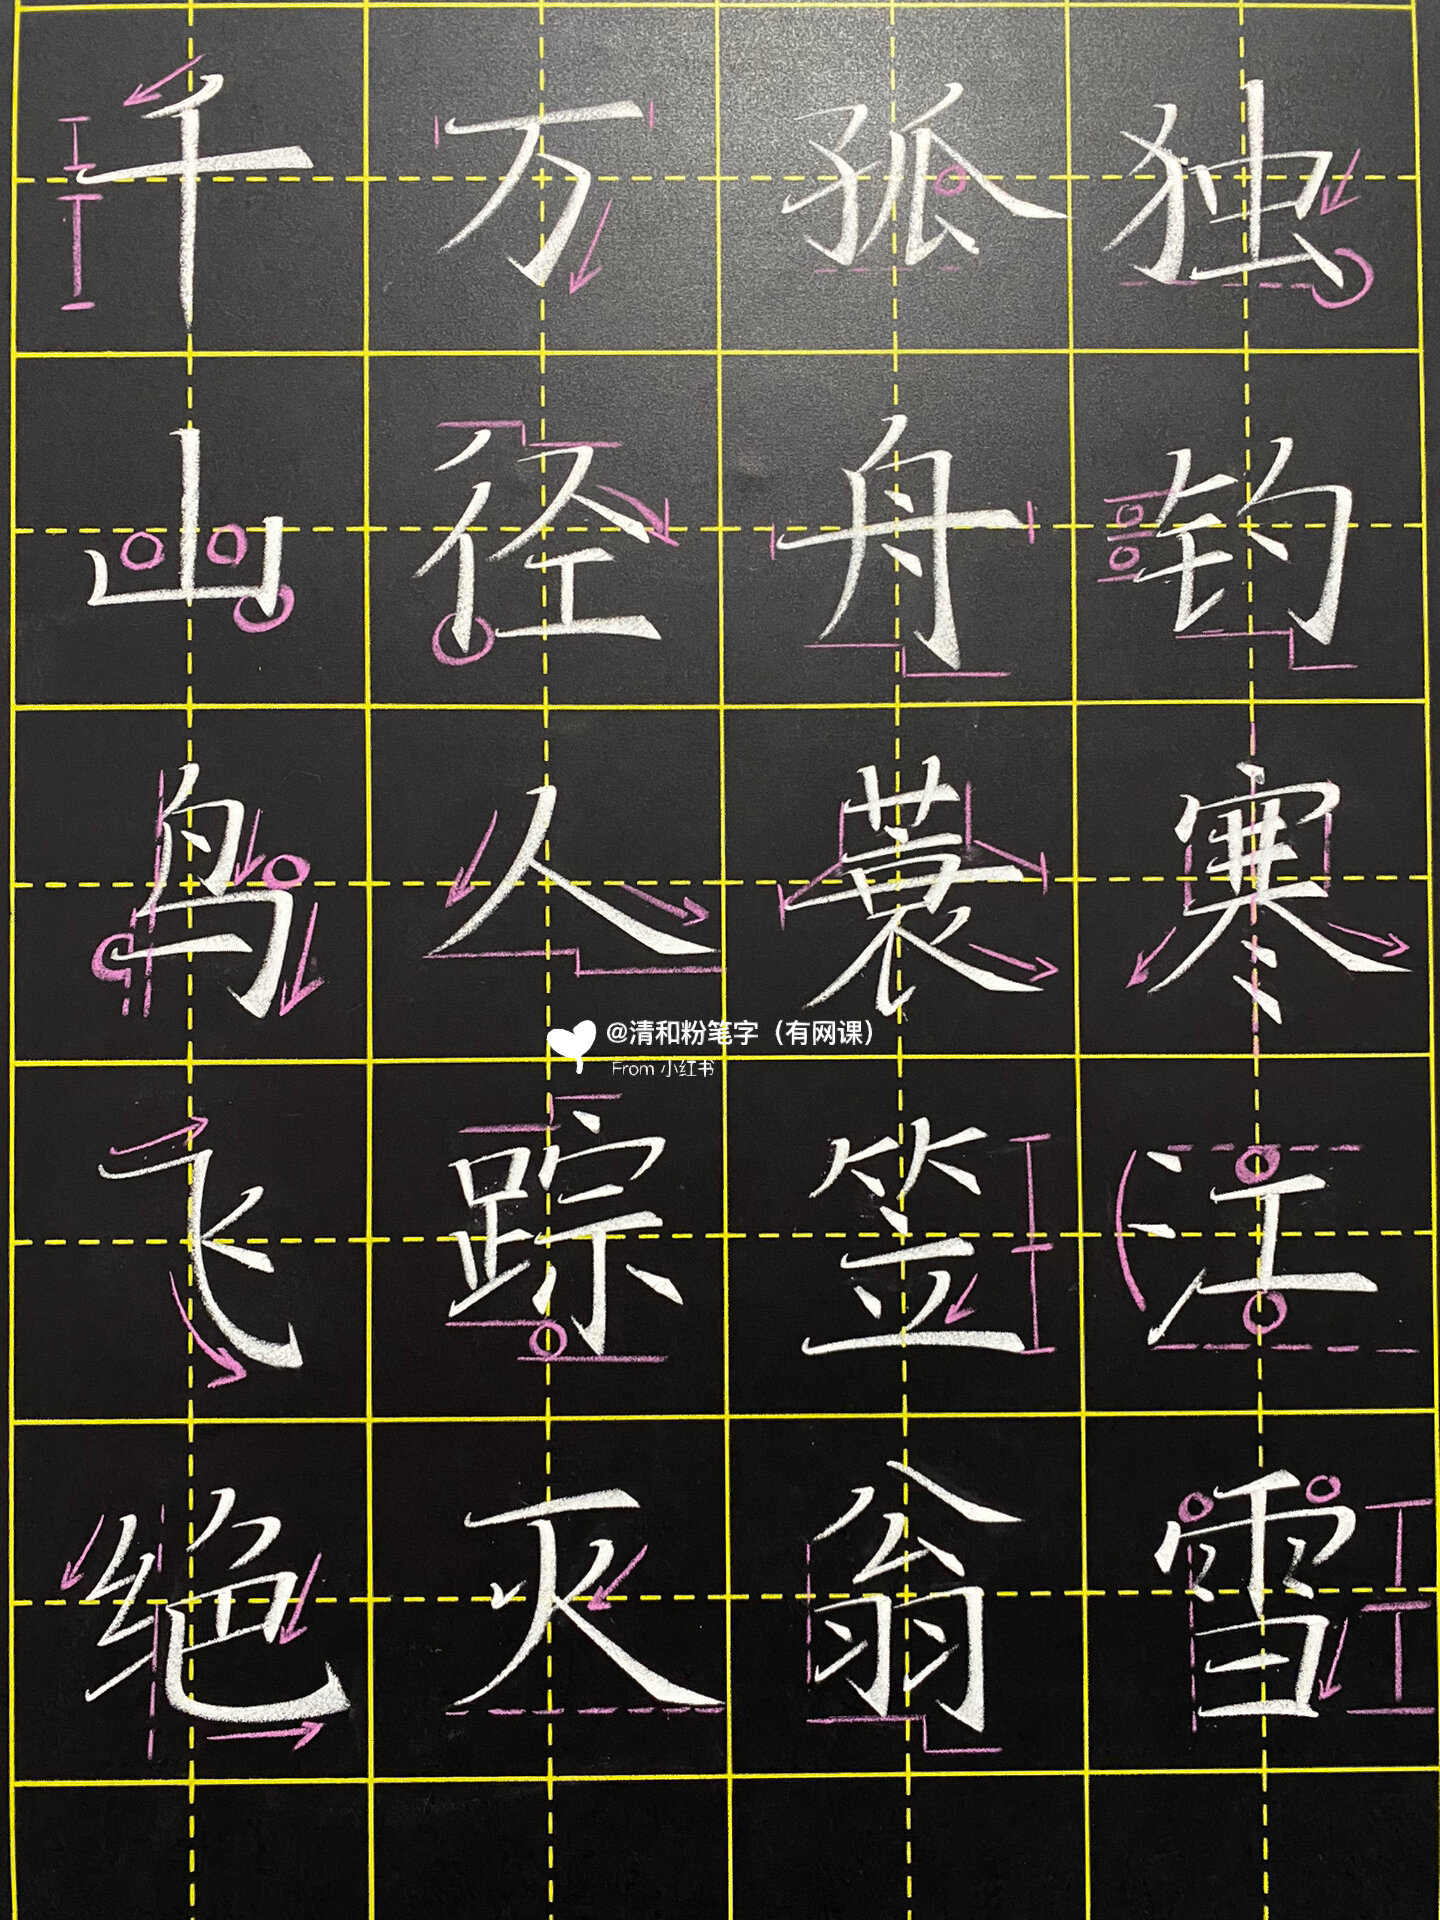 千山鸟飞绝
万径人踪灭
孤舟蓑笠翁
独钓寒江雪
@清和粉笔字（有网课）
From 小红书